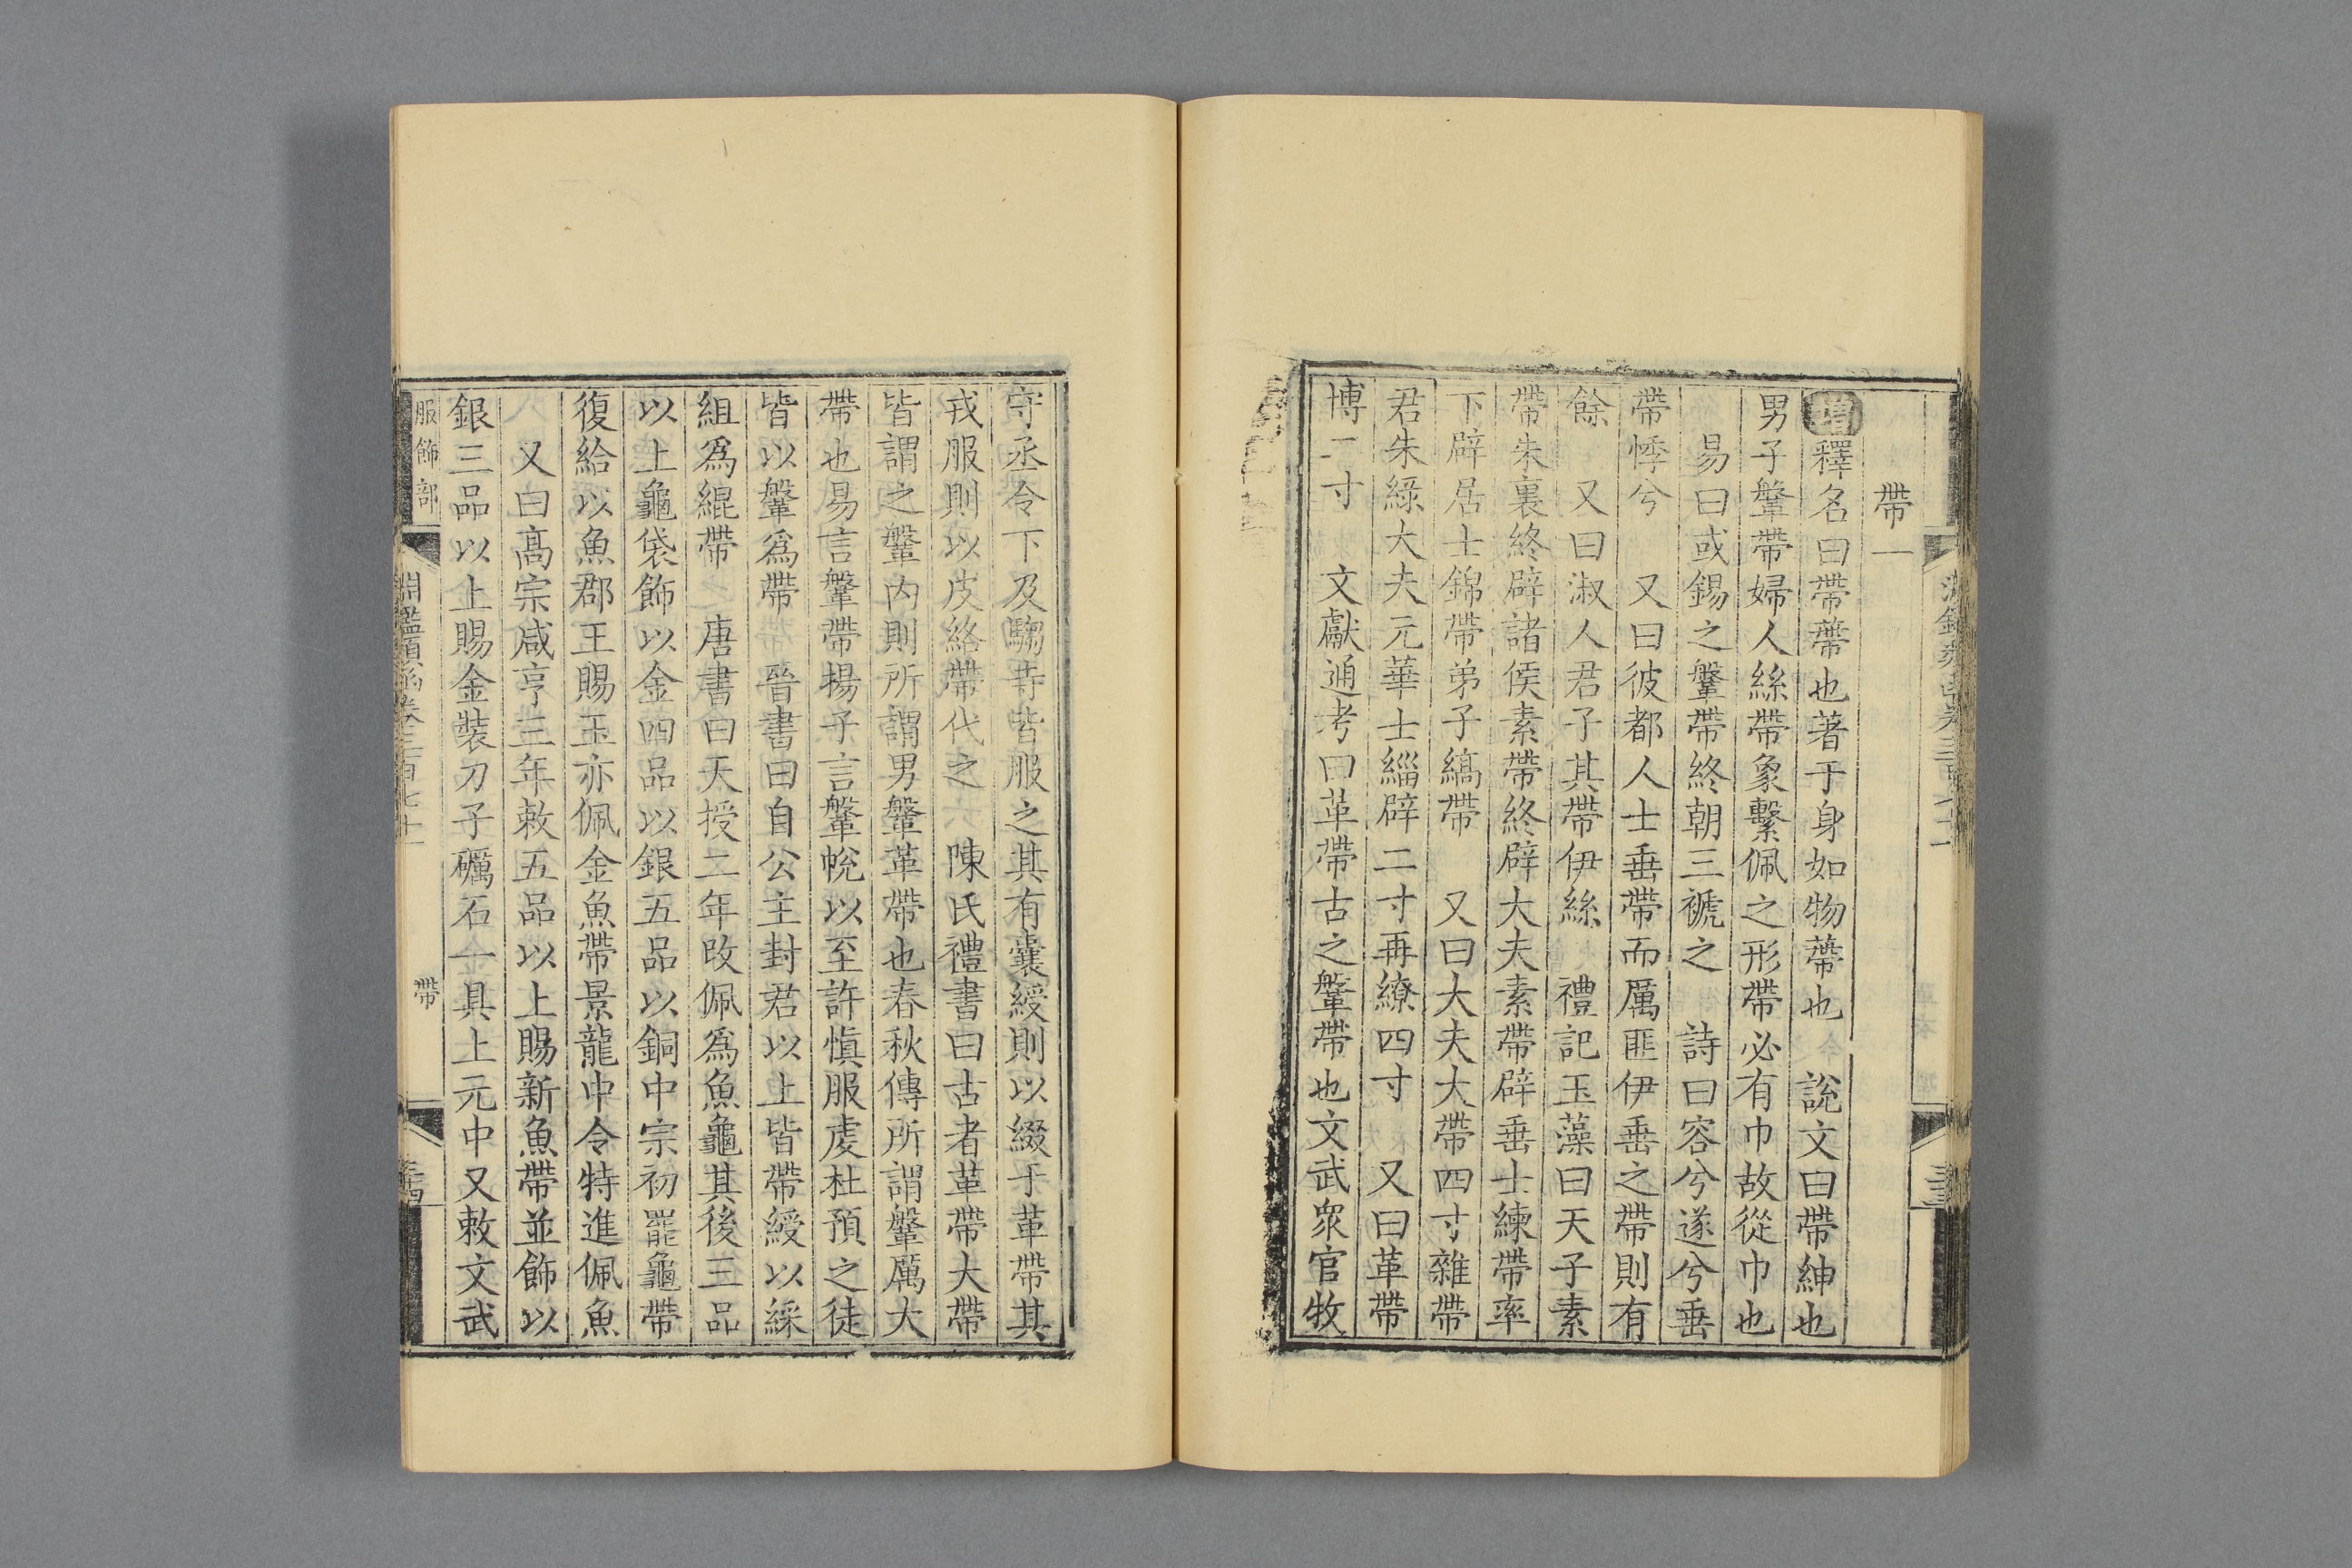 帶一
增釋名曰帶蔕也著于身如物蔕也 說文曰帶紳也
男子鞶帶婦人絲帶象繫佩之形帶必有巾故從巾也
易曰或錫之鞶帶終朝三褫之 詩曰容兮遂兮垂
帶悸兮 又曰彼都人士垂帶而厲匪伊垂之帶則有
餘 又曰淑人君子其帶伊絲 禮記玉藻曰天子素
帶朱裏終辟諸侯素帶終辟大夫素帶辟垂士練帶率
下辟居士錦帶弟子縞帶 又曰大夫大帶四寸雜帶
君朱綠大夫元華士緇辟二寸再繚四寸 又曰革帶
博二寸 文獻通考曰革帶古之鞶帶也文武衆官牧
守丞令下及騶寺皆服之其有囊綬則以綴于革帶其
戎服則以皮絡帶代之 陳氏禮書曰古者革帶大帶
皆謂之鞶內則所謂男鞶革帶也春秋傳所謂鞶厲大
帶也易言鞶帶揚子言鞶帨以至許慎服虔杜預之徒
皆以鞶爲帶 晉書曰自公主封君以上皆帶綬以綵
組爲緄帶 唐書曰天授二年改佩爲魚龜其後三品
以上龜袋飾以金四品以銀五品以銅中宗初罷龜帶
復給以魚郡王賜玉亦佩金魚帶景龍中令特進佩魚
又曰高宗咸亨三年敕五品以上賜新魚帶並飾以
銀三品以上賜金裝刀子礪石一具上元中又敕文武
服飾部 淵鑑類函卷三百七十一 帶 三十四